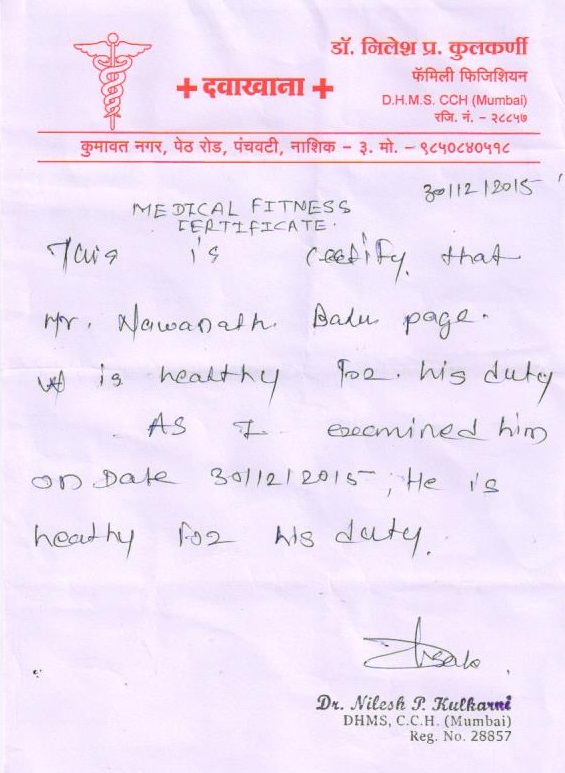 डॉ. निलेश प्र. कुलकर्णी
+ दवाखाना +
फॅमिली फिजिशियन
D.H.M.S. CCH (Mumbai)
रजि. नं. - २८८५७
कुमावत नगर, पेठ रोड, पंचवटी, नाशिक - ३. मो. - ९८५०८४०५१८
30/12/2015
MEDICAL FITNESS
CERTIFICATE.
This is certify that
Mr. Nawanath Balu page.
is healthy for his duty
As I examined him
on Date 30/12/2015, He is
heathy for his duty.
Dr. Nilesh P. Kulkarni
DHMS, C.C.H. (Mumbai)
Reg. No. 28857